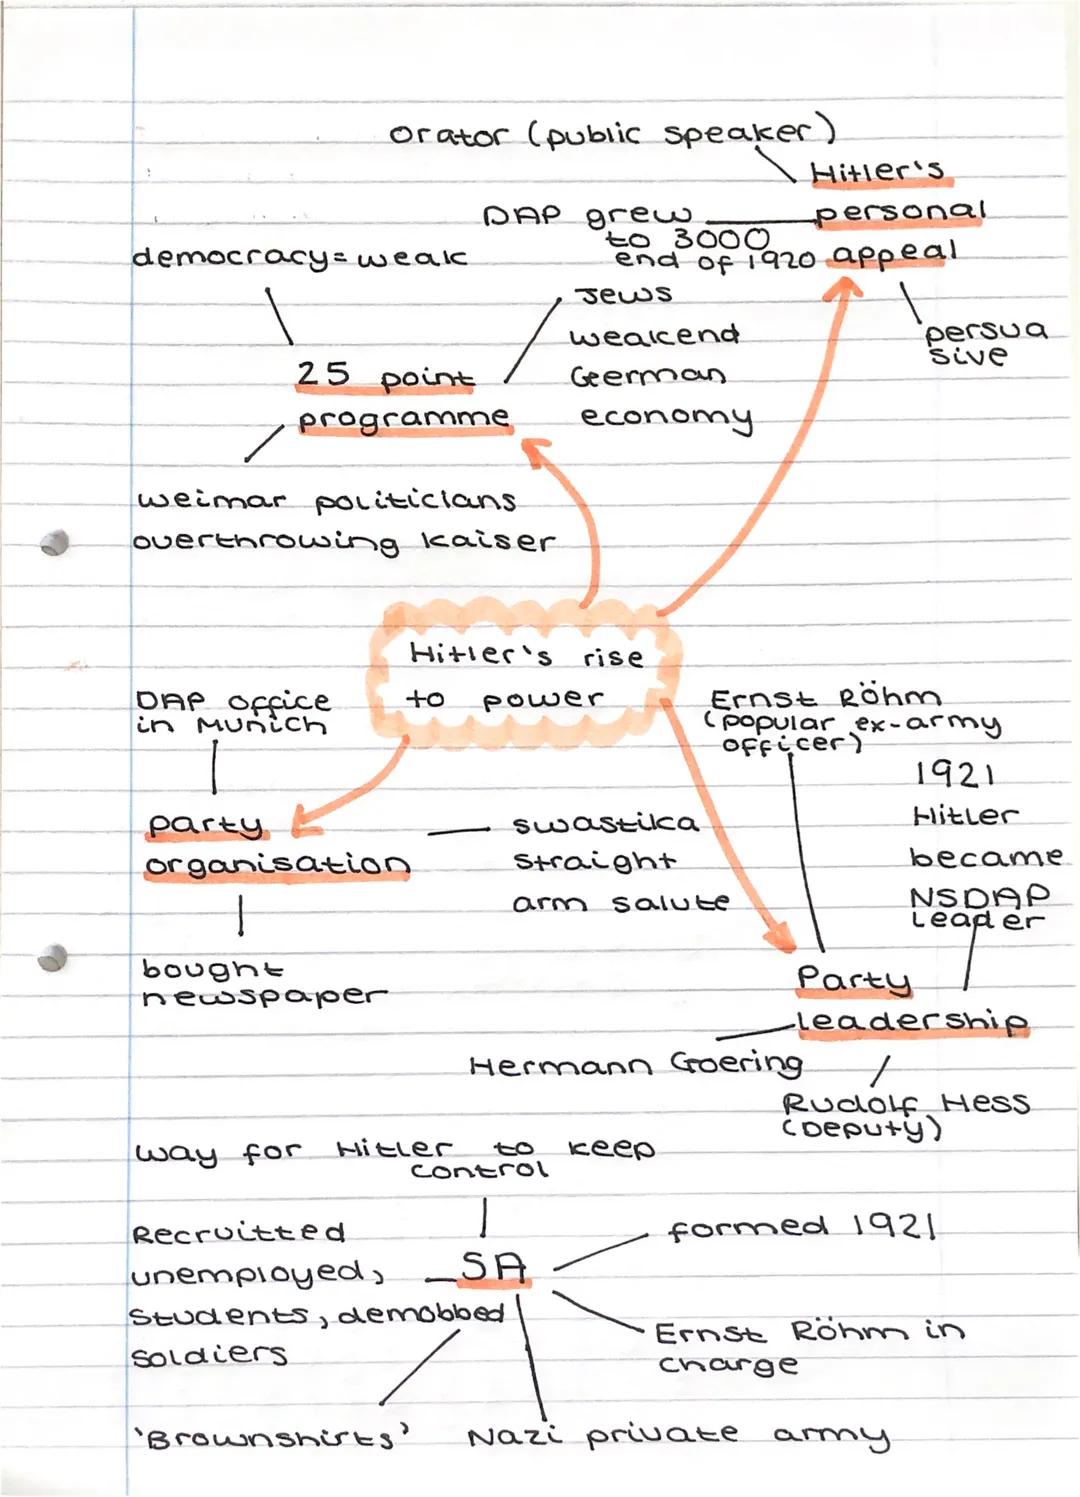 orator (public speaker)
Hitler's
personal
appeal
DAP grew
to 3000
end of 1920
persua
sive
democracy = weak
25 point
programme
Jews
weakend
German
economy
weimar politicians
overthrowing kaiser
Hitler's rise
to power
DAP office
in Munich
party
organisation
swastika
straight
arm salute
bought
newspaper
Ernst Röhm
(popular ex-army
officer)
1921
Hitler
became
NSDAP
Leader
Party
leadership
Hermann Goering
Rudolf Hess
(Deputy)
way for Hitler to keep
control
SA
Recruitted
unemployed,
students, demobbed
soldiers
formed 1921
Ernst Röhm in
charge
'Brownshirts'
Nazi private army